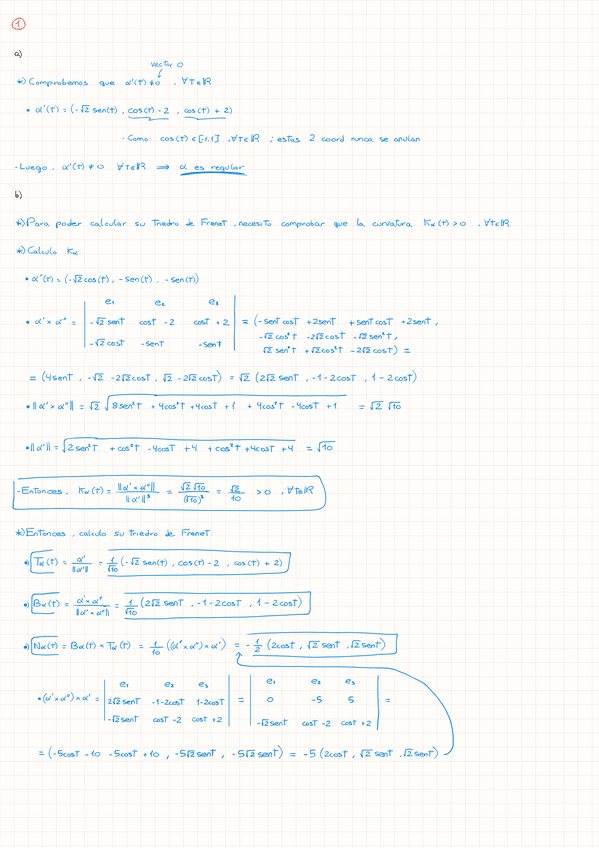 1
a)
vector 0
*) Comprobemos que α'(t) ≠ 0 , ∀t∈ℝ
• α'(t) = (-√2 sen(t) , cos(t) - 2 , cos(t) + 2)
- Como cos(t) ∈ [-1,1] , ∀t∈ℝ ; estas 2 coord nunca se anulan
- Luego , α'(t) ≠ 0 ∀t∈ℝ ⟹ α es regular
b)
*) Para poder calcular su Triedro de Frenet , necesito comprobar que la curvatura Kα(t) > 0 , ∀t∈ℝ
*) Calculo Kα:
• α''(t) = (-√2 cos(t) , - sen(t) , - sen(t))
• α' × α'' = | e₁ e₂ e₃ | = (-sent cost + 2sent + sent cost + 2sent ,
| -√2 sent cost - 2 cost + 2 | -√2 cos²t - 2√2 cost - √2 sen²t ,
| -√2 cost -sent -sent | √2 sen²t + √2 cos²t - 2√2 cost) =
= (4sent , -√2 - 2√2 cost , √2 - 2√2 cost) = √2 (2√2 sent , -1 - 2cost , 1 - 2cost)
• ||α' × α''|| = √2 √(8sen²t + 4cos²t + 4cost + 1 + 4cos²t - 4cost + 1) = √2 √10
• ||α'|| = √(2sen²t + cos²t - 4cost + 4 + cos²t + 4cost + 4) = √10
- Entonces , Kα(t) = ||α' × α''|| / ||α'||³ = √2 √10 / (√10)³ = √2 / 10 > 0 , ∀t∈ℝ
*) Entonces , calculo su triedro de Frenet:
•) Tα(t) = α' / ||α'|| = 1/√10 (-√2 sen(t) , cos(t) - 2 , cos(t) + 2)
•) Bα(t) = α' × α'' / ||α' × α''|| = 1/√10 (2√2 sent , -1 - 2cost , 1 - 2cost)
•) Nα(t) = Bα(t) × Tα(t) = 1/10 ((α' × α'') × α') = - 1/2 (2cost , √2 sent , √2 sent)
• (α' × α'') × α' = | e₁ e₂ e₃ | = | e₁ e₂ e₃ | =
| 2√2 sent -1-2cost 1-2cost | | 0 -5 5 |
| -√2 sent cost - 2 cost + 2 | | -√2 sent cost - 2 cost + 2 |
= (-5cost - 10 - 5cost + 10 , -5√2 sent , -5√2 sent) = -5 (2cost , √2 sent , √2 sent)